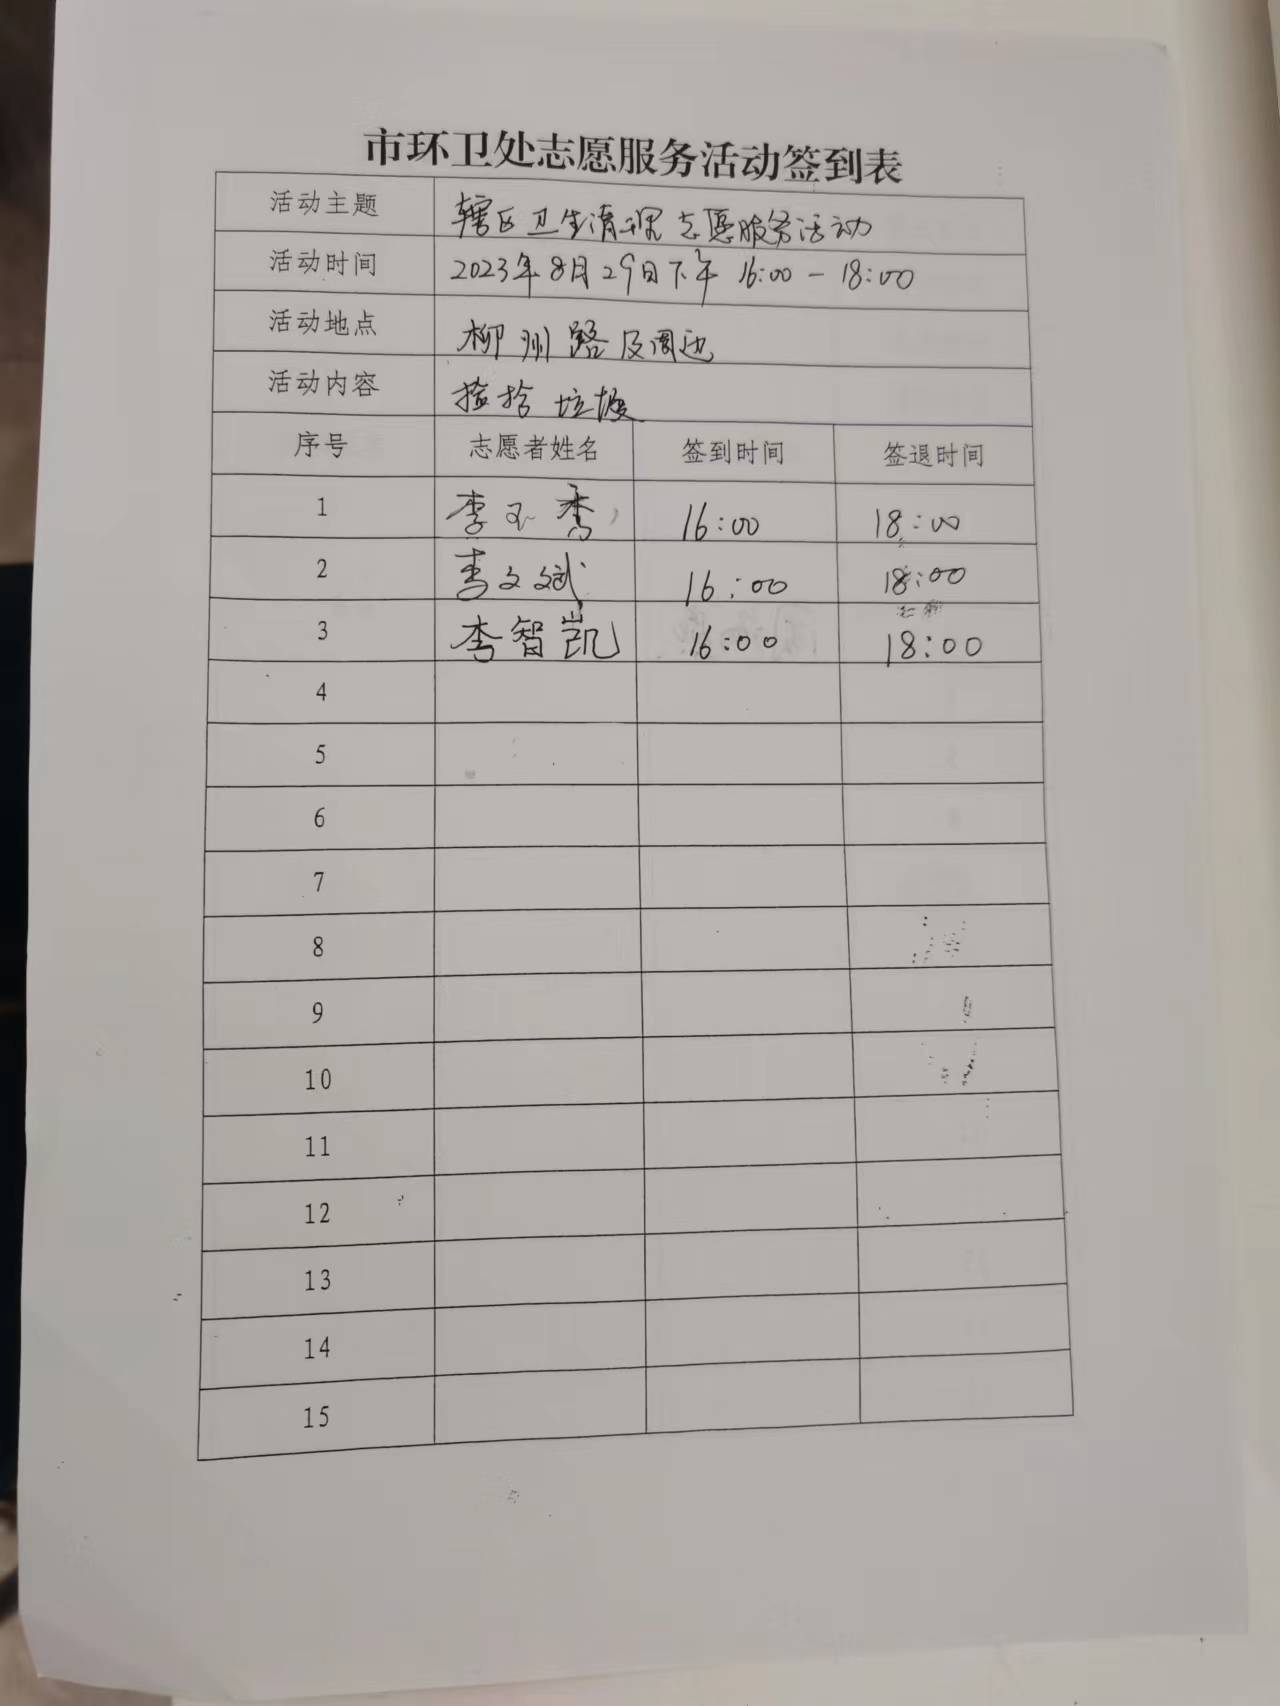 市环卫处志愿服务活动签到表
活动主题 辖区卫生清理志愿服务活动
活动时间 2023年8月29日下午 16:00-18:00
活动地点 柳州路及周边
活动内容 捡拾垃圾
序号 志愿者姓名 签到时间 签退时间
1 李玉香 16:00 18:00
2 李文斌 16:00 18:00
3 李智凯 16:00 18:00
4
5
6
7
8
9
10
11
12
13
14
15